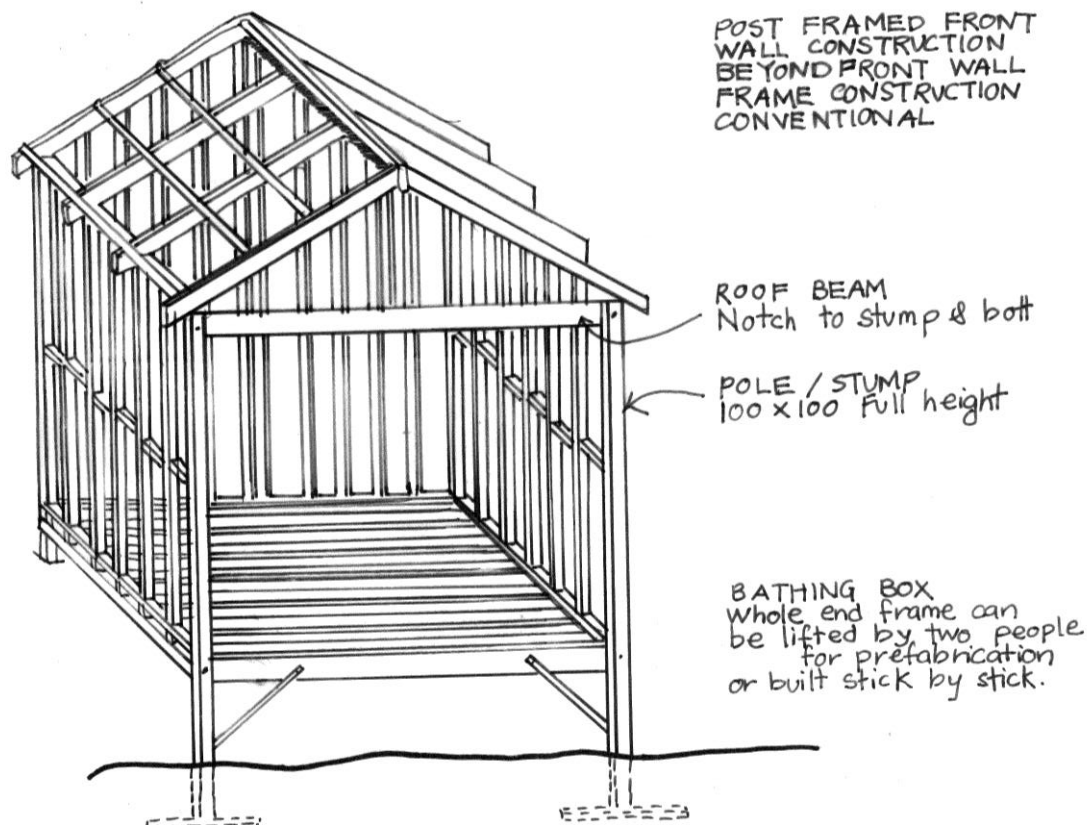 POST FRAMED FRONT
WALL CONSTRUCTION
BEYOND FRONT WALL
FRAME CONSTRUCTION
CONVENTIONAL
ROOF BEAM
Notch to stump & bolt
POLE / STUMP
100 x 100 Full height
BATHING BOX
Whole end frame can
be lifted by two people
for prefabrication
or built stick by stick.